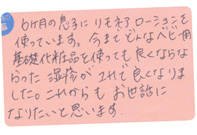 6ケ月の息子にリモネローションを
使っています。今までどんなベビー用
基礎化粧品を使っても良くならな
らった湿疹がこれで良くなりま
した。これからもお世話に
なりたいと思います。